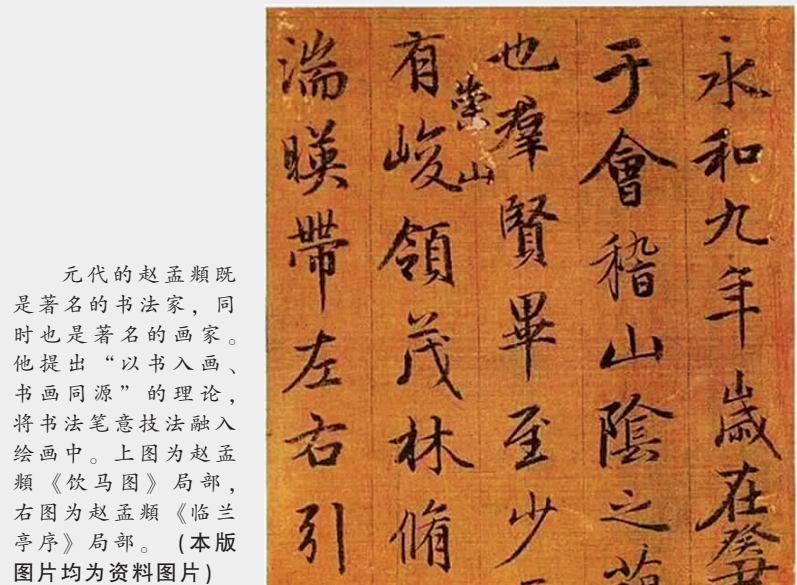 元代的赵孟頫既
是著名的书法家，同
时也是著名的画家。
他提出“以书入画、
书画同源”的理论，
将书法笔意技法融入
绘画中。上图为赵孟
頫《饮马图》局部，
右图为赵孟頫《临兰
亭序》局部。（本版
图片均为资料图片）
永和九年歲在癸丑
于會稽山陰之蘭
也羣賢畢至少
有崇山峻領茂林脩
湍暎帶左右引